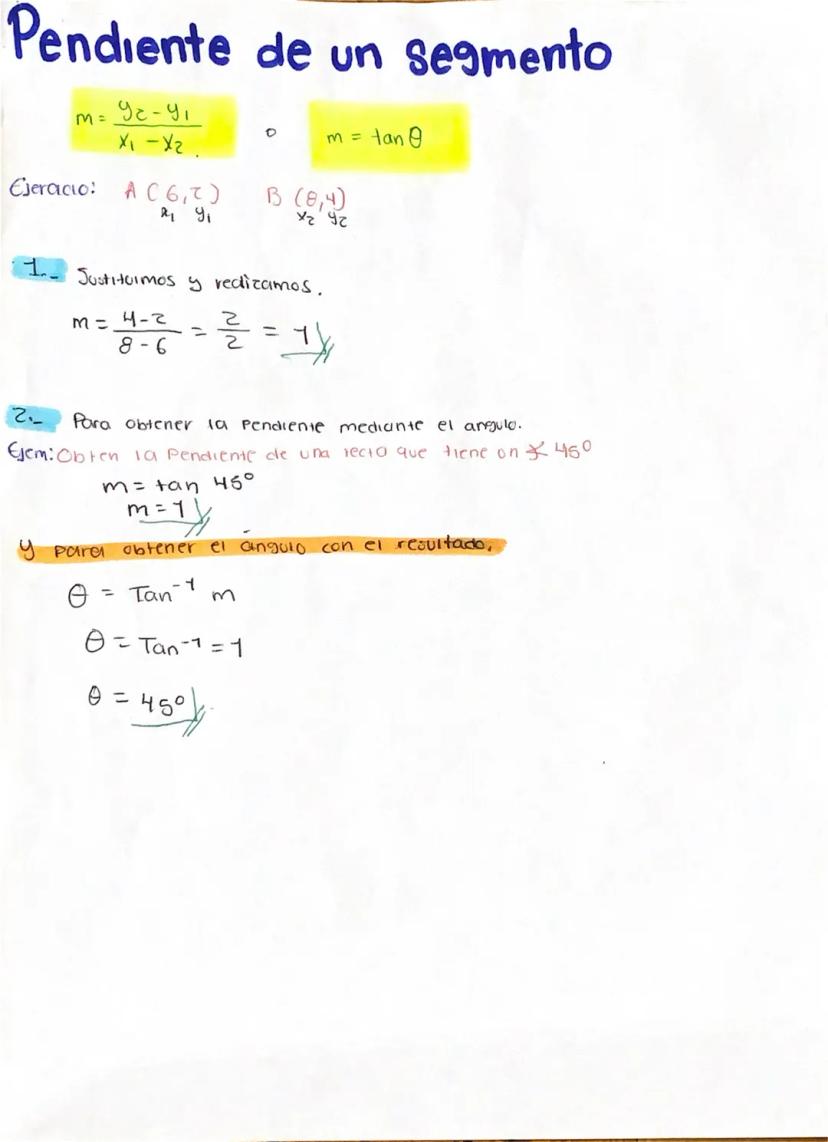 Pendiente de un segmento
m = y2 - y1 / x1 - x2 o m = tan θ
Ejercicio: A (6,2) B (8,4)
x1 y1 x2 y2
1.- Sustituimos y realizamos.
m = 4-2 / 8-6 = 2/2 = 1
2.- Para obtener la Pendiente mediante el angulo.
Ejem: Obten la Pendiente de una recta que tiene un ∡ 45°
m = tan 45°
m = 1
y para obtener el ángulo con el resultado.
θ = Tan⁻¹ m
θ = Tan⁻¹ = 1
θ = 45°